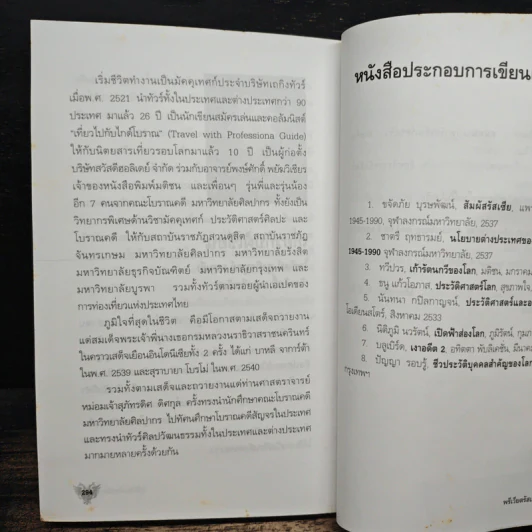 เริ่มชีวิตทำงานเป็นมัคคุเทศก์ประจำบริษัทเถกิงทัวร์
เมื่อพ.ศ. 2521 นำทัวร์ทั้งในประเทศและต่างประเทศกว่า 90
ประเทศ มาแล้ว 26 ปี เป็นนักเขียนสมัครเล่นและคอลัมนิสต์
"เที่ยวไปกับไกด์โบราณ" (Travel with Professiona Guide)
ให้กับนิตยสารเที่ยวรอบโลกมาแล้ว 10 ปี เป็นผู้ก่อตั้ง
บริษัทสวัสดีฮอลิเดย์ จำกัด ร่วมกับอาจารย์พงษ์ศักดิ์ พยัฆวิเชียร
เจ้าของหนังสือพิมพ์มติชน และเพื่อนๆ รุ่นพี่และรุ่นน้อง
อีก 7 คนจากคณะโบราณคดี มหาวิทยาลัยศิลปากร ทั้งยังเป็น
วิทยากรพิเศษด้านวิชามัคคุเทศก์ ประวัติศาสตร์ศิลปะ และ
โบราณคดี ให้กับสถาบันราชภัฏสวนดุสิต สถาบันราชภัฏ
จันทรเกษม มหาวิทยาลัยศิลปากร มหาวิทยาลัยรังสิต
มหาวิทยาลัยธุรกิจบัณฑิตย์ มหาวิทยาลัยกรุงเทพ และ
มหาวิทยาลัยบูรพา รวมทั้งทัวร์ตามรอยผู้นำเอเปคของ
การท่องเที่ยวแห่งประเทศไทย
ภูมิใจที่สุดในชีวิต คือมีโอกาสตามเสด็จถวายงาน
แต่สมเด็จพระเจ้าพี่นางเธอกรมหลวงนราธิวาสราชนครินทร์
ในคราวเสด็จเยือนอินโดนีเซียทั้ง 2 ครั้ง ได้แก่ บาหลี จาการ์ต้า
ในพ.ศ. 2539 และสุราบายา โบรโม่ ในพ.ศ. 2540
รวมทั้งตามเสด็จและถวายงานแด่ท่านศาสตราจารย์
หม่อมเจ้าสุภัทรดิศ ดิศกุล ครั้งทรงนำนักศึกษาคณะโบราณคดี
มหาวิทยาลัยศิลปากร ไปทัศนศึกษาโบราณคดีสัญจรในประเทศ
และทรงนำทัวร์ศิลปวัฒนธรรมทั้งในประเทศและต่างประเทศ
มากมายหลายครั้งด้วยกัน
294
หนังสือประกอบการเขียน
1. ขจัดภัย บุรุษพัฒน์, สัมผัสรัสเซีย, แพ
1945-1990, จุฬาลงกรณ์มหาวิทยาลัย, 2537
2. ชาตรี ฤทธารมย์, นโยบายต่างประเทศของ
1945-1990 จุฬาลงกรณ์มหาวิทยาลัย, 2537
3. ทวีปวร, เก้ารัตนกวีของโลก, มติชน, มกราคม
4. ธนู แก้วโอภาส, ประวัติศาสตร์โลก, สุขภาพใจ,
5. นันทนา กปิลกาญจน์, ประวัติศาสตร์และอ
โอเดียนสโตร์, สิงหาคม 2533
6. นิติภูมิ นวรัตน์, เปิดฟ้าส่องโลก, ภูมิรัตน์, กุมภ
7. บลูเบิร์ด, เงาอดีต 2, อทิตตา พับลิเคชั่น, มีนาค
8. ปัญญา รอบรู้, ชีวประวัติบุคคลสำคัญของโลก
กรุงเทพฯ